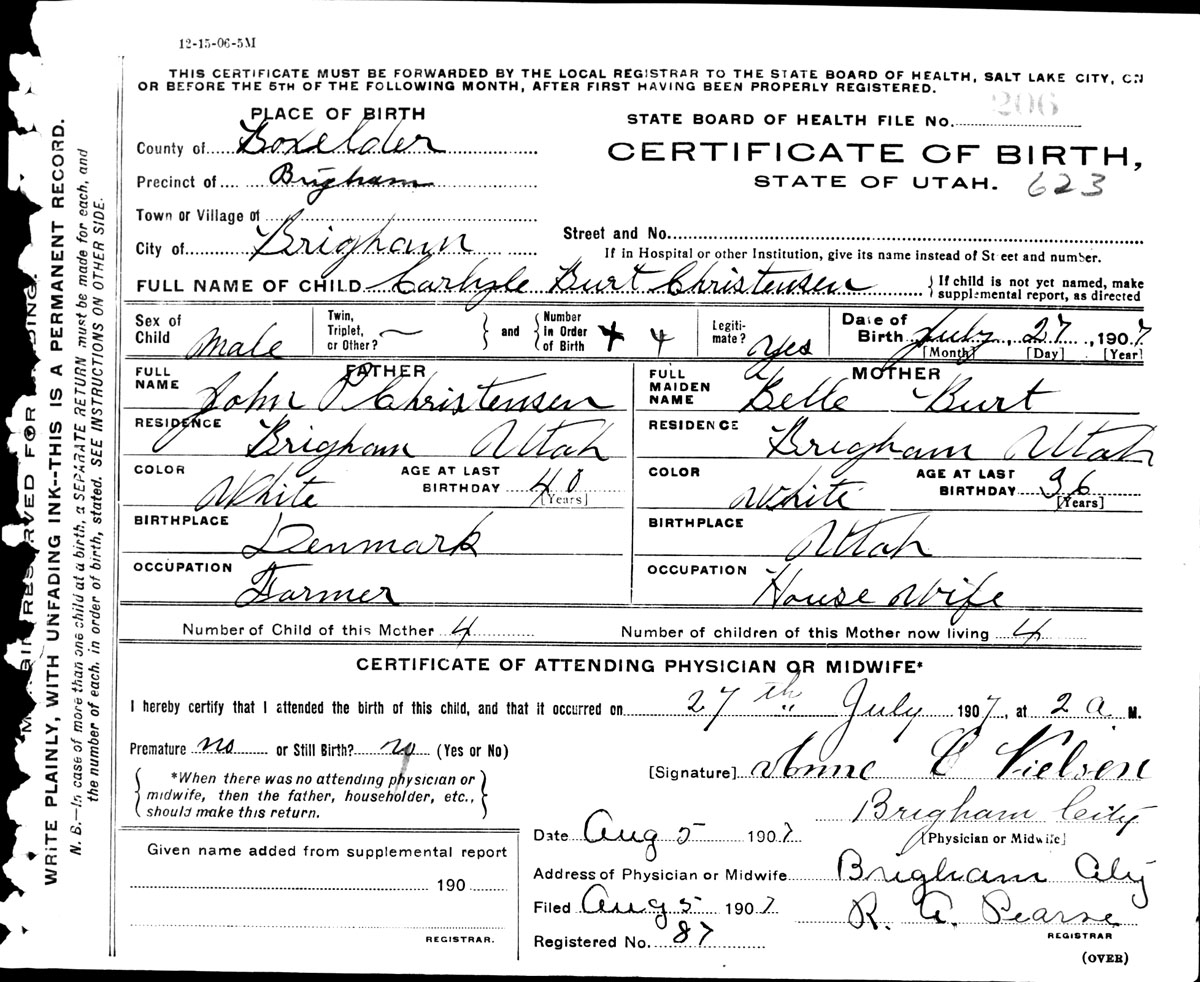 12-15-06-5M
THIS CERTIFICATE MUST BE FORWARDED BY THE LOCAL REGISTRAR TO THE STATE BOARD OF HEALTH, SALT LAKE CITY, ON
OR BEFORE THE 5TH OF THE FOLLOWING MONTH, AFTER FIRST HAVING BEEN PROPERLY REGISTERED.
206
PLACE OF BIRTH
STATE BOARD OF HEALTH FILE No.
County of Boxelder
CERTIFICATE OF BIRTH,
Precinct of Brigham
STATE OF UTAH. 623
Town or Village of
Street and No.
City of Brigham
If in Hospital or other Institution, give its name instead of Street and number.
FULL NAME OF CHILD Carlyle Burt Christensen
If child is not yet named, make supplemental report, as directed
Sex of Child Male
Twin, Triplet, or Other? —
and
Number in Order of Birth 4 4
Legitimate? Yes
Date of Birth July, 27, 1907
[Month] [Day] [Year]
FATHER
MOTHER
FULL NAME John P Christensen
FULL MAIDEN NAME Belle Burt
RESIDENCE Brigham Utah
RESIDENCE Brigham Utah
COLOR White AGE AT LAST BIRTHDAY 40 [Years]
COLOR White AGE AT LAST BIRTHDAY 36 [Years]
BIRTHPLACE Denmark
BIRTHPLACE Utah
OCCUPATION Farmer
OCCUPATION House Wife
Number of Child of this Mother 4
Number of children of this Mother now living 4
CERTIFICATE OF ATTENDING PHYSICIAN OR MIDWIFE*
I hereby certify that I attended the birth of this child, and that it occurred on 27th July 1907, at 2 a M.
Premature no or Still Birth? no (Yes or No)
*When there was no attending physician or
midwife, then the father, householder, etc.,
should make this return.
[Signature] Anne C Nielsen
Brigham City
[Physician or Midwife]
Date Aug 5 1907
Given name added from supplemental report
190
REGISTRAR.
Address of Physician or Midwife Brigham City
Filed Aug 5 1907 R. A. Pearse
REGISTRAR
Registered No. 87
(OVER)
WRITE PLAINLY, WITH UNFADING INK--THIS IS A PERMANENT RECORD.
N. B.—In case of more than one child at a birth, a SEPARATE RETURN must be made for each, and
the number of each, in order of birth, stated. SEE INSTRUCTIONS ON OTHER SIDE.